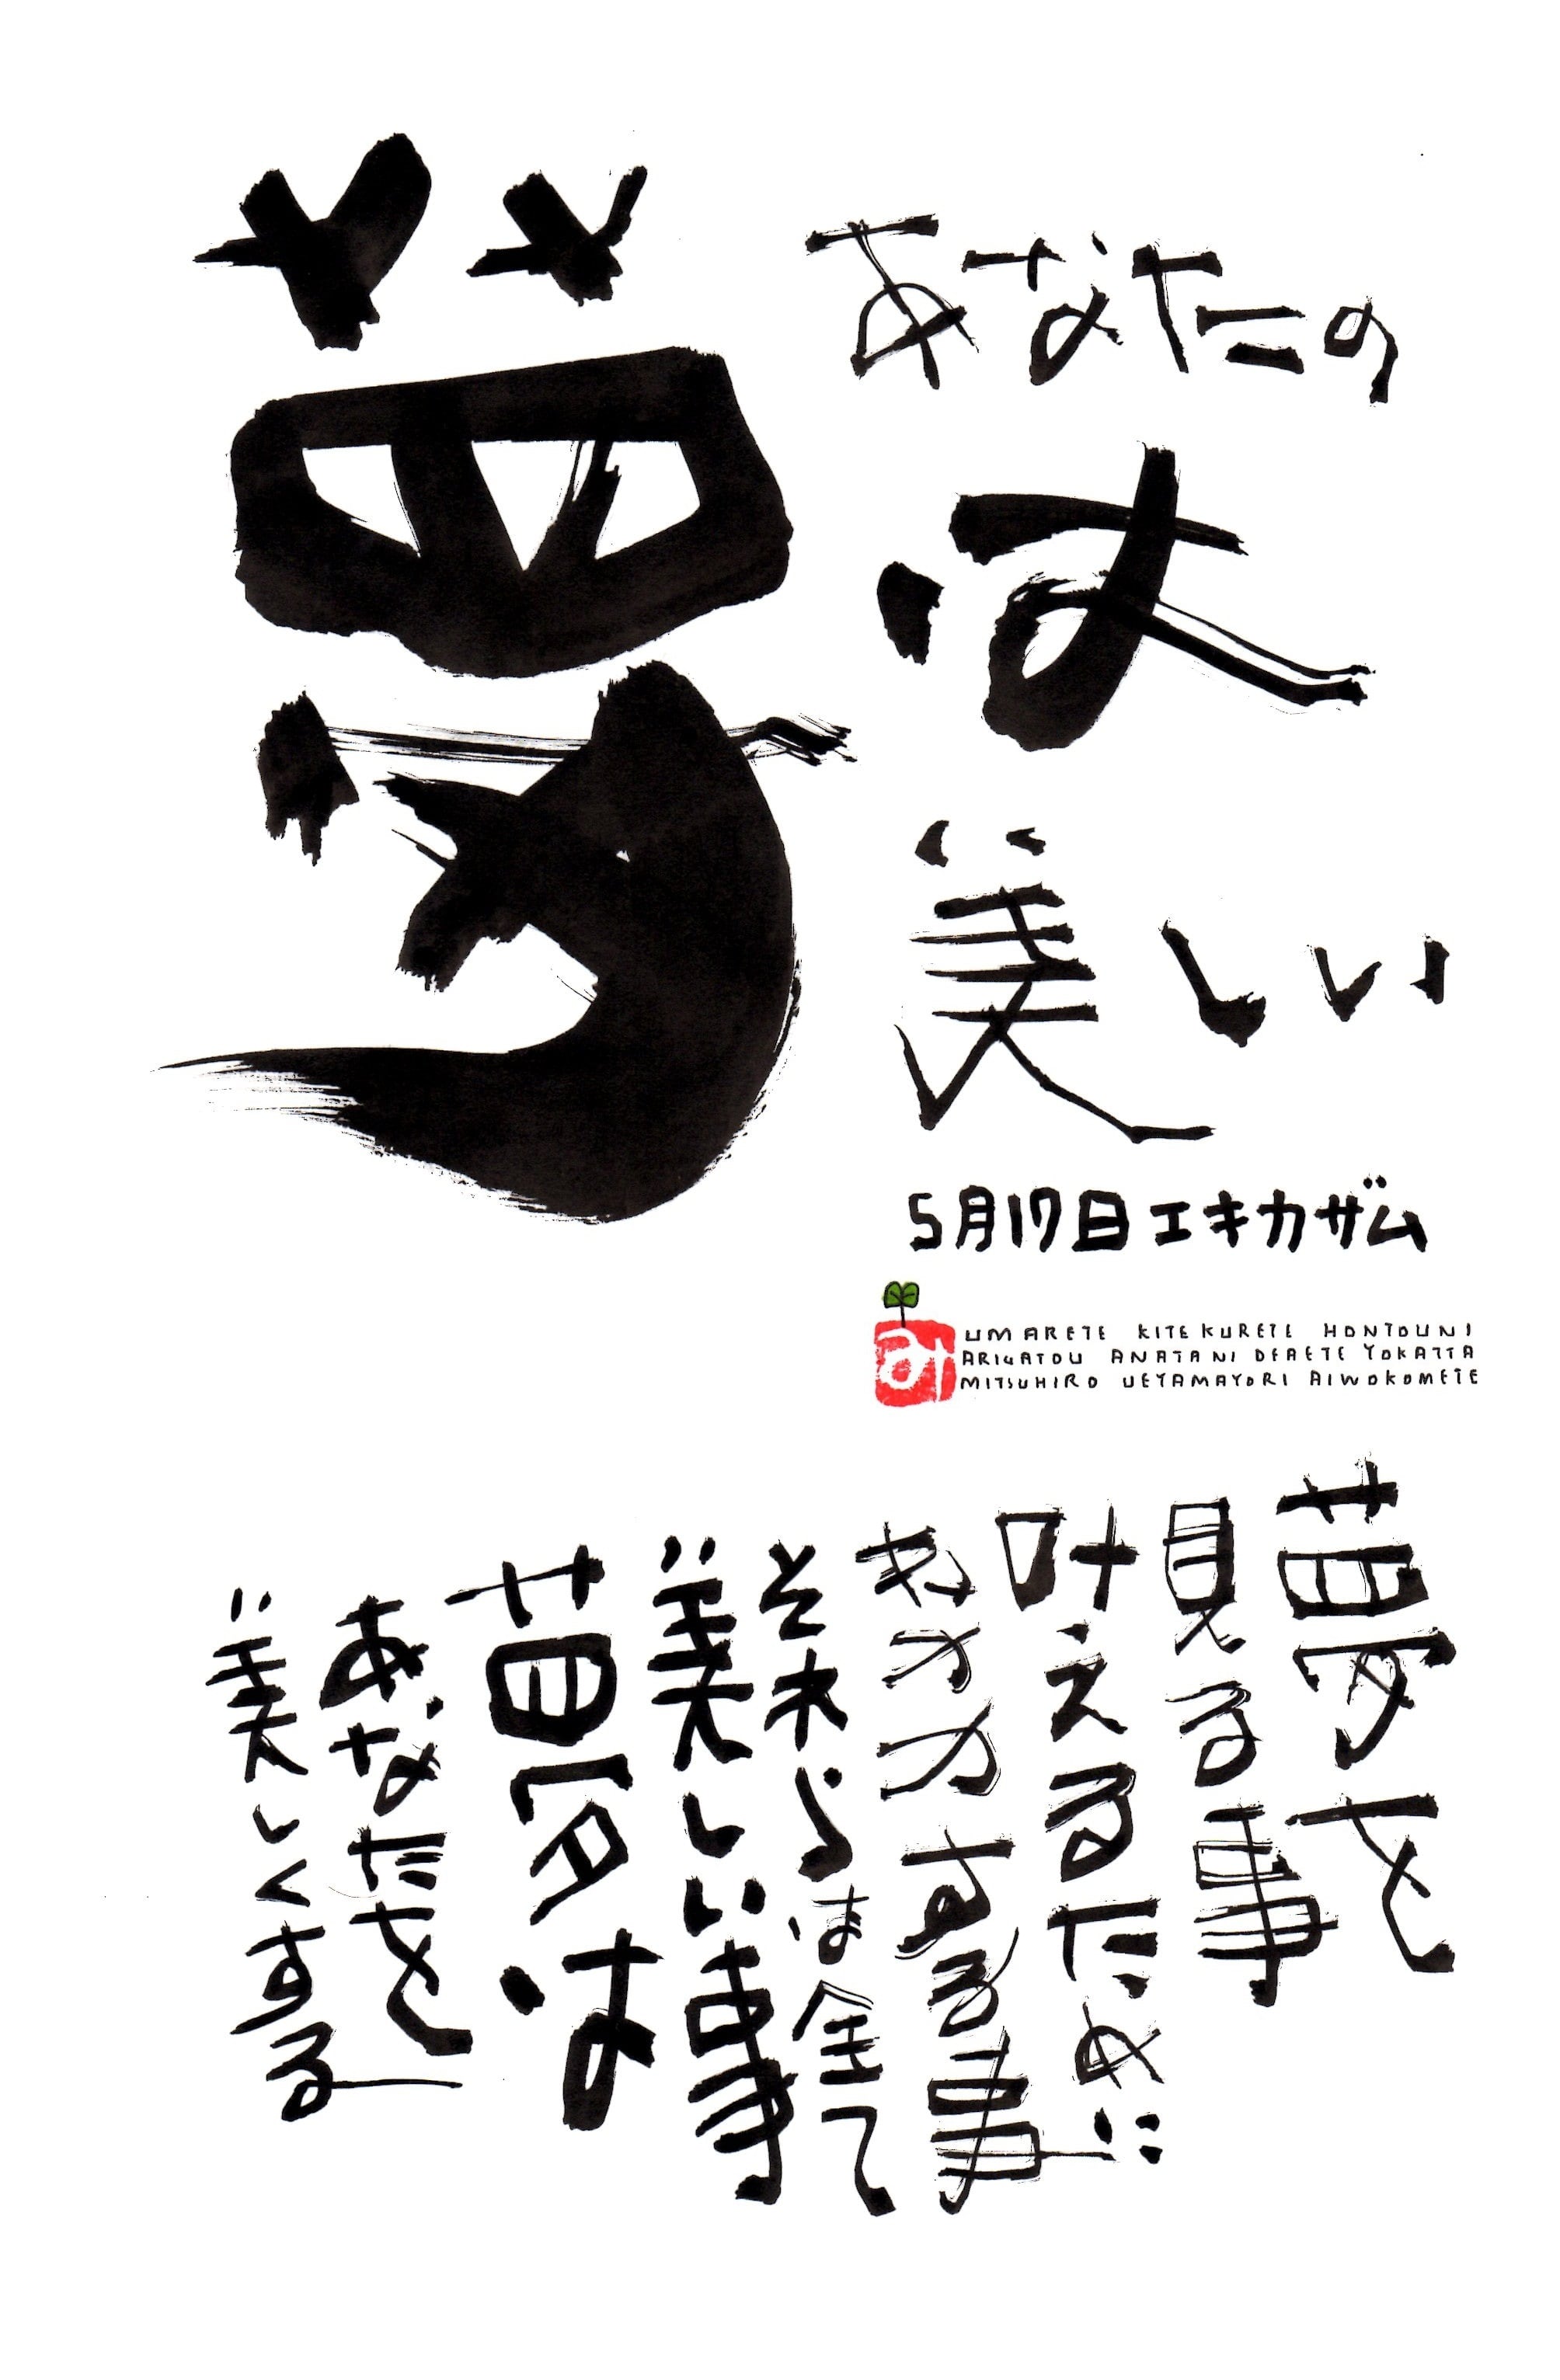 あなたの
夢
は
美しい
5月17日エキカザム
み
UMARETE KITE KURETE HONTOUNI
ARIGATOU ANATANI DEAETE YOKATTA
MITSUHIRO UEYAMAYORI AIWOKOMETE
夢を
見る事
叶えるために
努力する事
それらは全て
美しい事
夢は
あなたを
美しくする